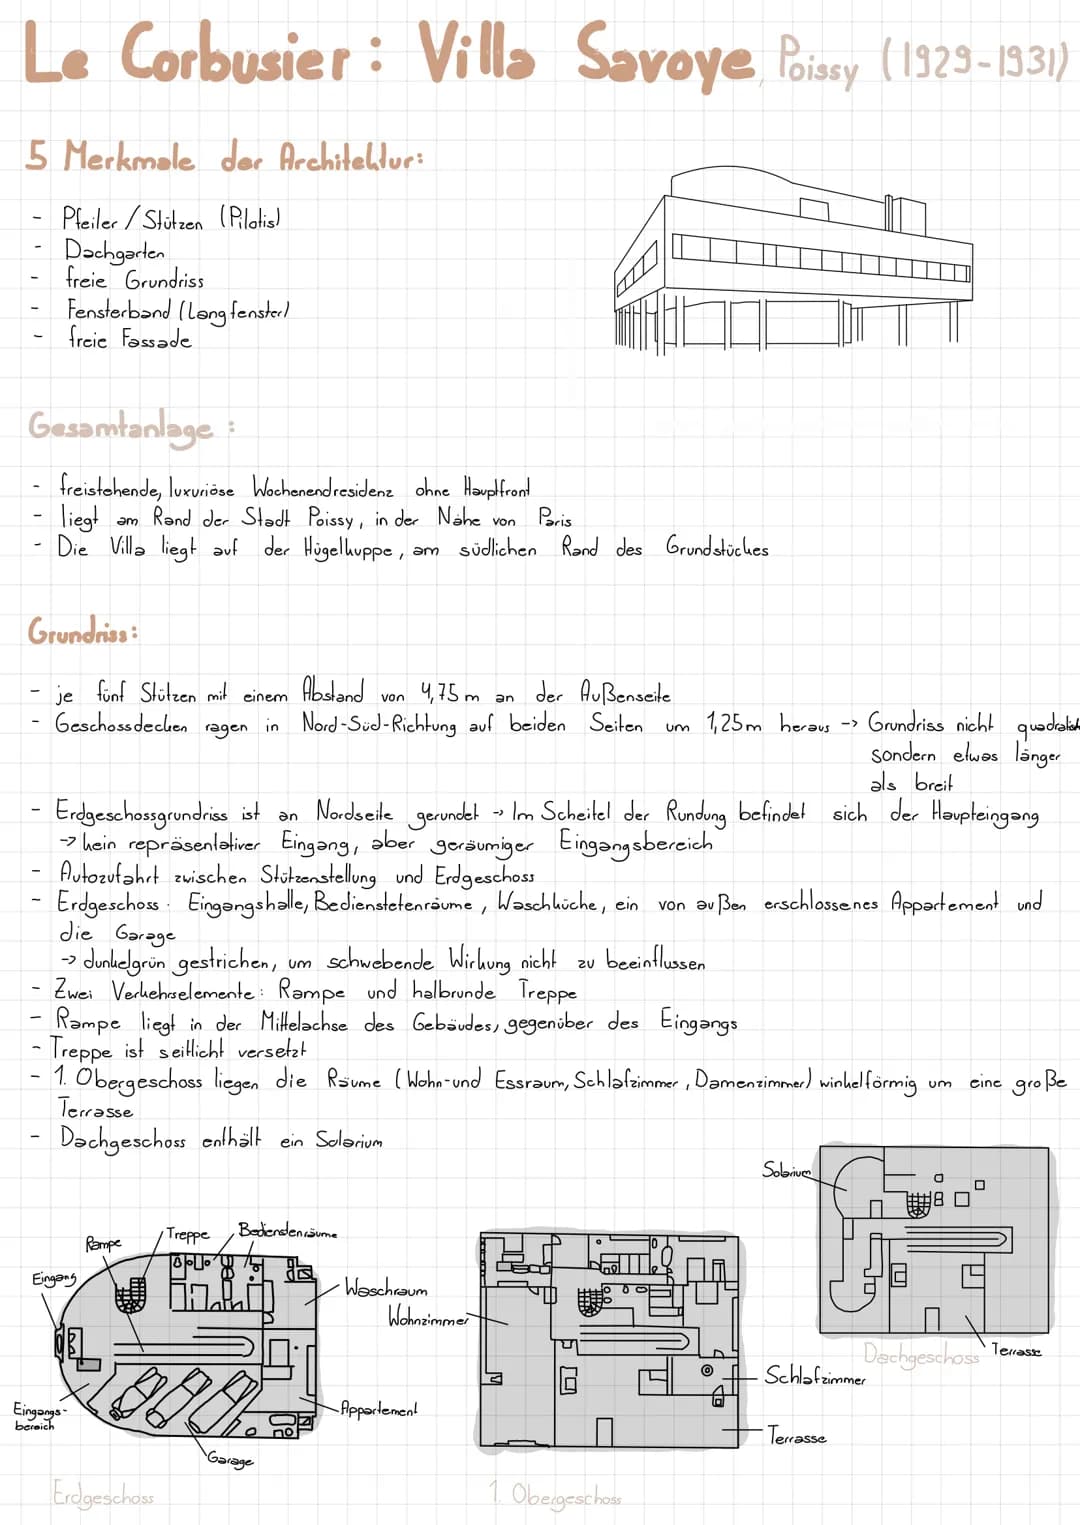 Le Corbusier: Villa Savoye, Poissy (1929-1931)
5 Merkmale der Architektur:
- Pfeiler / Stützen (Pilotis)
- Dachgarten
- freie Grundriss
- Fensterband (Langfenster)
- freie Fassade
Gesamtanlage:
- freistehende, luxuriöse Wochenendresidenz ohne Hauptfront
- liegt am Rand der Stadt Poissy, in der Nähe von Paris
- Die Villa liegt auf der Hügelkuppe, am südlichen Rand des Grundstückes
Grundriss:
- je fünf Stützen mit einem Abstand von 4,75 m an der Außenseite
- Geschossdecken ragen in Nord-Süd-Richtung auf beiden Seiten um 1,25m heraus -> Grundriss nicht quadratisch
sondern etwas länger
als breit
- Erdgeschossgrundriss ist an Nordseite gerundet -> Im Scheitel der Rundung befindet sich der Haupteingang
-> kein repräsentativer Eingang, aber geräumiger Eingangsbereich
- Autozufahrt zwischen Stützenstellung und Erdgeschoss
- Erdgeschoss: Eingangshalle, Bedienstetenräume, Waschküche, ein von außen erschlossenes Appartement und
die Garage
-> dunkelgrün gestrichen, um schwebende Wirkung nicht zu beeinflussen
- Zwei Verkehrselemente: Rampe und halbrunde Treppe
- Rampe liegt in der Mittelachse des Gebäudes, gegenüber des Eingangs
- Treppe ist seitlicht versetzt
- 1. Obergeschoss liegen die Räume (Wohn-und Essraum, Schlafzimmer, Damenzimmer) winkelförmig um eine große
Terrasse
- Dachgeschoss enthält ein Solarium
Solarium
Terrasse
Dachgeschoss
Rampe
Treppe
Bedienstenräume
Eingang
Waschraum
Appartement
Eingangs-
bereich
Garage
Erdgeschoss
Wohnzimmer
Schlafzimmer
Terrasse
1. Obergeschoss